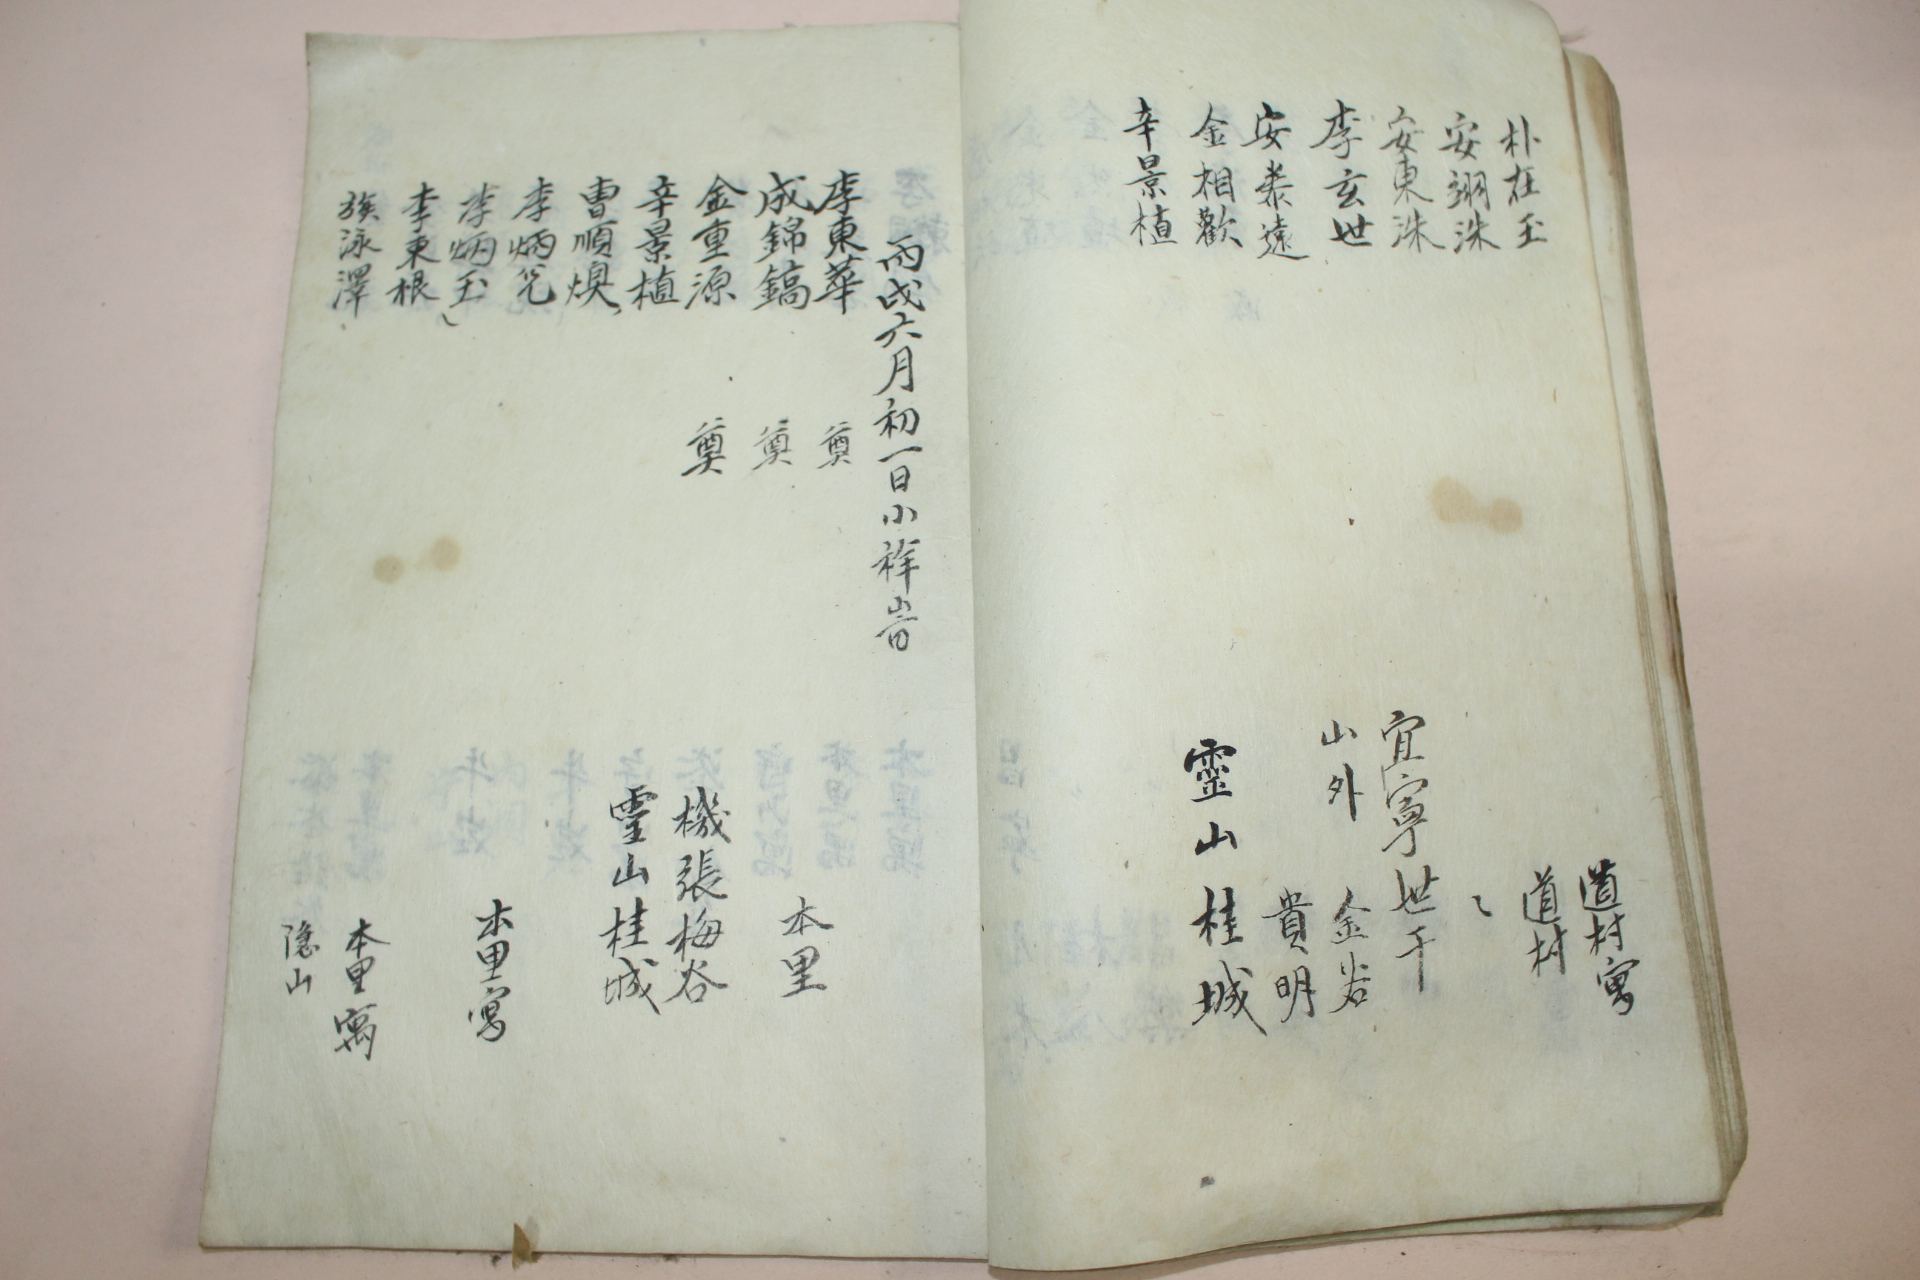 朴在玉 道村寓
安翊洙 道村
安東洙 〻
李玄世 宜寧世干
安泰遠 山外 金谷
金相歡 貴明
辛景植 靈山桂城
丙戌六月初一日小祥時
李東華 奠 本里
成錦鎬 奠
金重源 奠 機張梅谷
辛景植 靈山桂城
曺順煥
李炳 本里寓
李炳玉 〻
李東根 本里寓
族泳澤 隱山